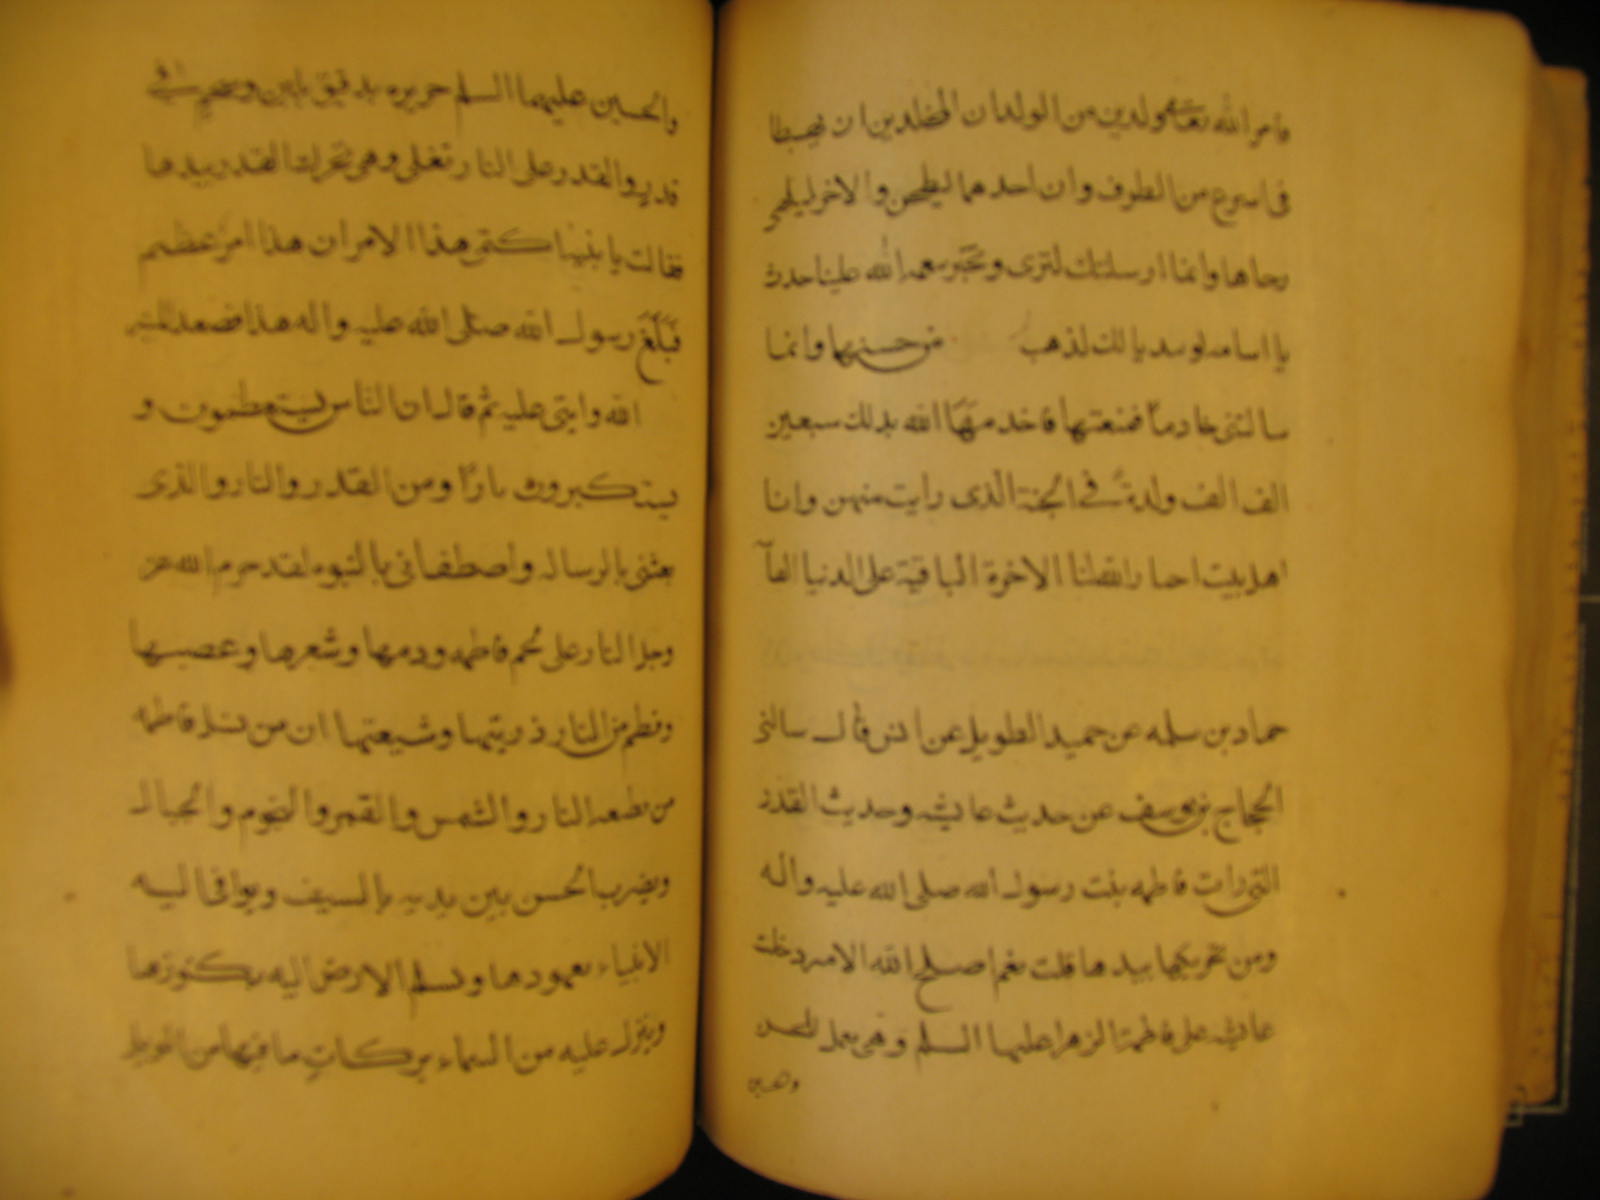 فامر الله تعالى ولدين من الولدان المخلدين ان يهبطا
في اسرع من الطرف وان احدهما ليطحن والاخر ليلهي
رحاها وانما ارسلتك لترى وتخبر بنعمة الله علينا حدث
يا اسامه لو تبدي لك لذهب من حسنهما وانما
سالتني خادما فمنعتها فاخدمها الله بذلك سبعين
الف الف وليدة في الجنة الذى رايت منهن وانا
اهل بيت اختار الله لنا الاخرة الباقية على الدنيا الفا
حماد بن سلمه عن حميد الطويل عن انس قال سالني
الحجاج بن يوسف عن حديث عايشه وحديث القدر
التي رات فاطمه بنت رسول الله صلى الله عليه واله
ومن تحريكها بيدها قلت نعم اصلح الله الامير دخلت
عايشه على فاطمة الزهرا عليها السلم وهي تعمل للحسن
والحسين
والحسين عليهما السلم حريره بدقيق بلبن وشحم في
قدر والقدر على النار تغلى وهى تحرك القدر بيدها
فقالت يا بنيه اكتمى هذا الامر ان هذا امر عظيم
فبلغ رسول الله صلى الله عليه واله هذا فصعد المنبر
الله واثنى عليه ثم قال ان الناس يستعظمون و
يستكبرون ما راو من القدر والنار والذى
بعثنى بالرساله واصطفانى بالنبوه لقد حرم الله عز
وجل النار على لحم فاطمه ودمها وشعرها وعصبها
وفطم من النار ذريتها وشيعتها ان من نسل فاطمه
من تطيعه النار والشمس والقمر والنجوم والجبال
ويضرب الجن بين يديه بالسيف ويوافى اليه
الانبياء بعهودها وتسلم الارض اليه بكنوزها
وينزل عليه من السماء بركات ما فيها من الويل